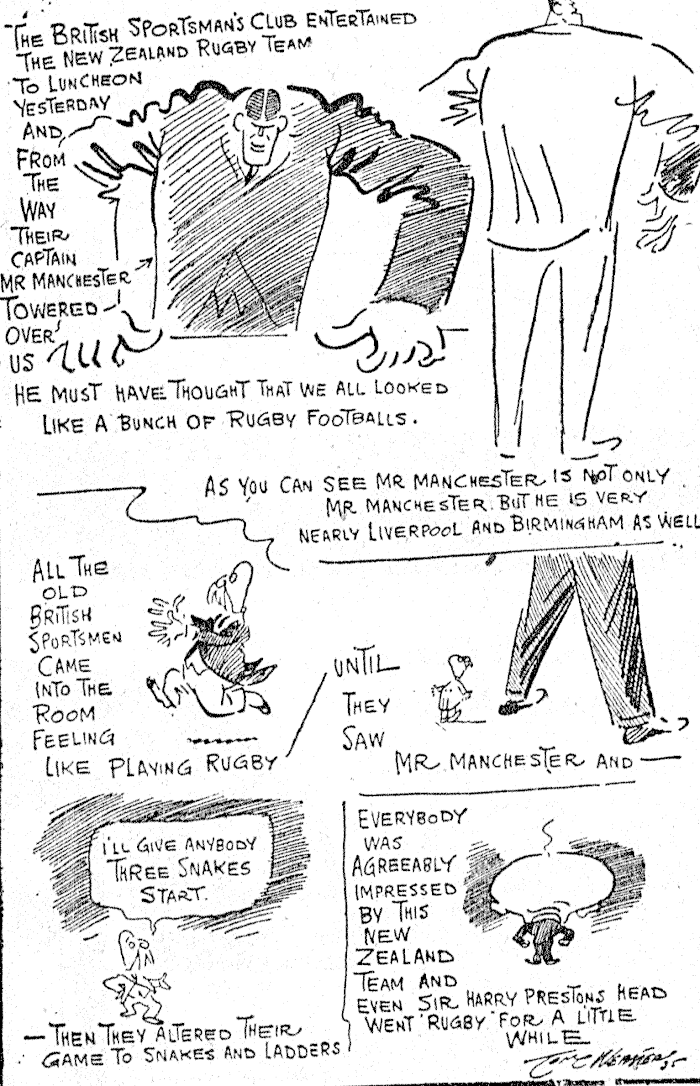 THE BRITISH SPORTSMAN'S CLUB ENTERTAINED
THE NEW ZEALAND RUGBY TEAM
TO LUNCHEON
YESTERDAY
AND
FROM
THE
WAY
THEIR
CAPTAIN
MR MANCHESTER
TOWERED
OVER
US
HE MUST HAVE THOUGHT THAT WE ALL LOOKED
LIKE A BUNCH OF RUGBY FOOTBALLS.
AS YOU CAN SEE MR MANCHESTER IS NOT ONLY
MR MANCHESTER BUT HE IS VERY
NEARLY LIVERPOOL AND BIRMINGHAM AS WELL
ALL THE
OLD
BRITISH
SPORTSMEN
CAME
INTO THE
ROOM
FEELING
LIKE PLAYING RUGBY
UNTIL
THEY
SAW
MR MANCHESTER AND —
I'LL GIVE ANYBODY
THREE SNAKES
START.
— THEN THEY ALTERED THEIR
GAME TO SNAKES AND LADDERS
EVERYBODY
WAS
AGREEABLY
IMPRESSED
BY THIS
NEW
ZEALAND
TEAM AND
EVEN SIR HARRY PRESTONS HEAD
WENT 'RUGBY' FOR A LITTLE
WHILE